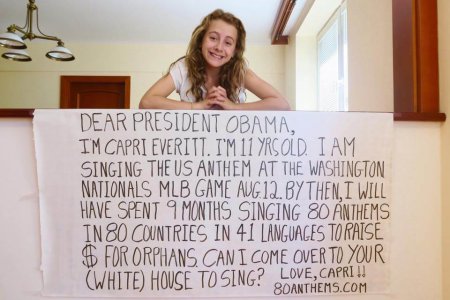 DEAR PRESIDENT OBAMA,
I'M CAPRI EVERITT. I'M 11 YRS OLD. I AM
SINGING THE US ANTHEM AT THE WASHINGTON
NATIONALS MLB GAME AUG.12. BY THEN, I WILL
HAVE SPENT 9 MONTHS SINGING 80 ANTHEMS
IN 80 COUNTRIES IN 41 LANGUAGES TO RAISE
$ FOR ORPHANS. CAN I COME OVER TO YOUR
(WHITE) HOUSE TO SING? LOVE, CAPRI!!
80ANTHEMS.COM